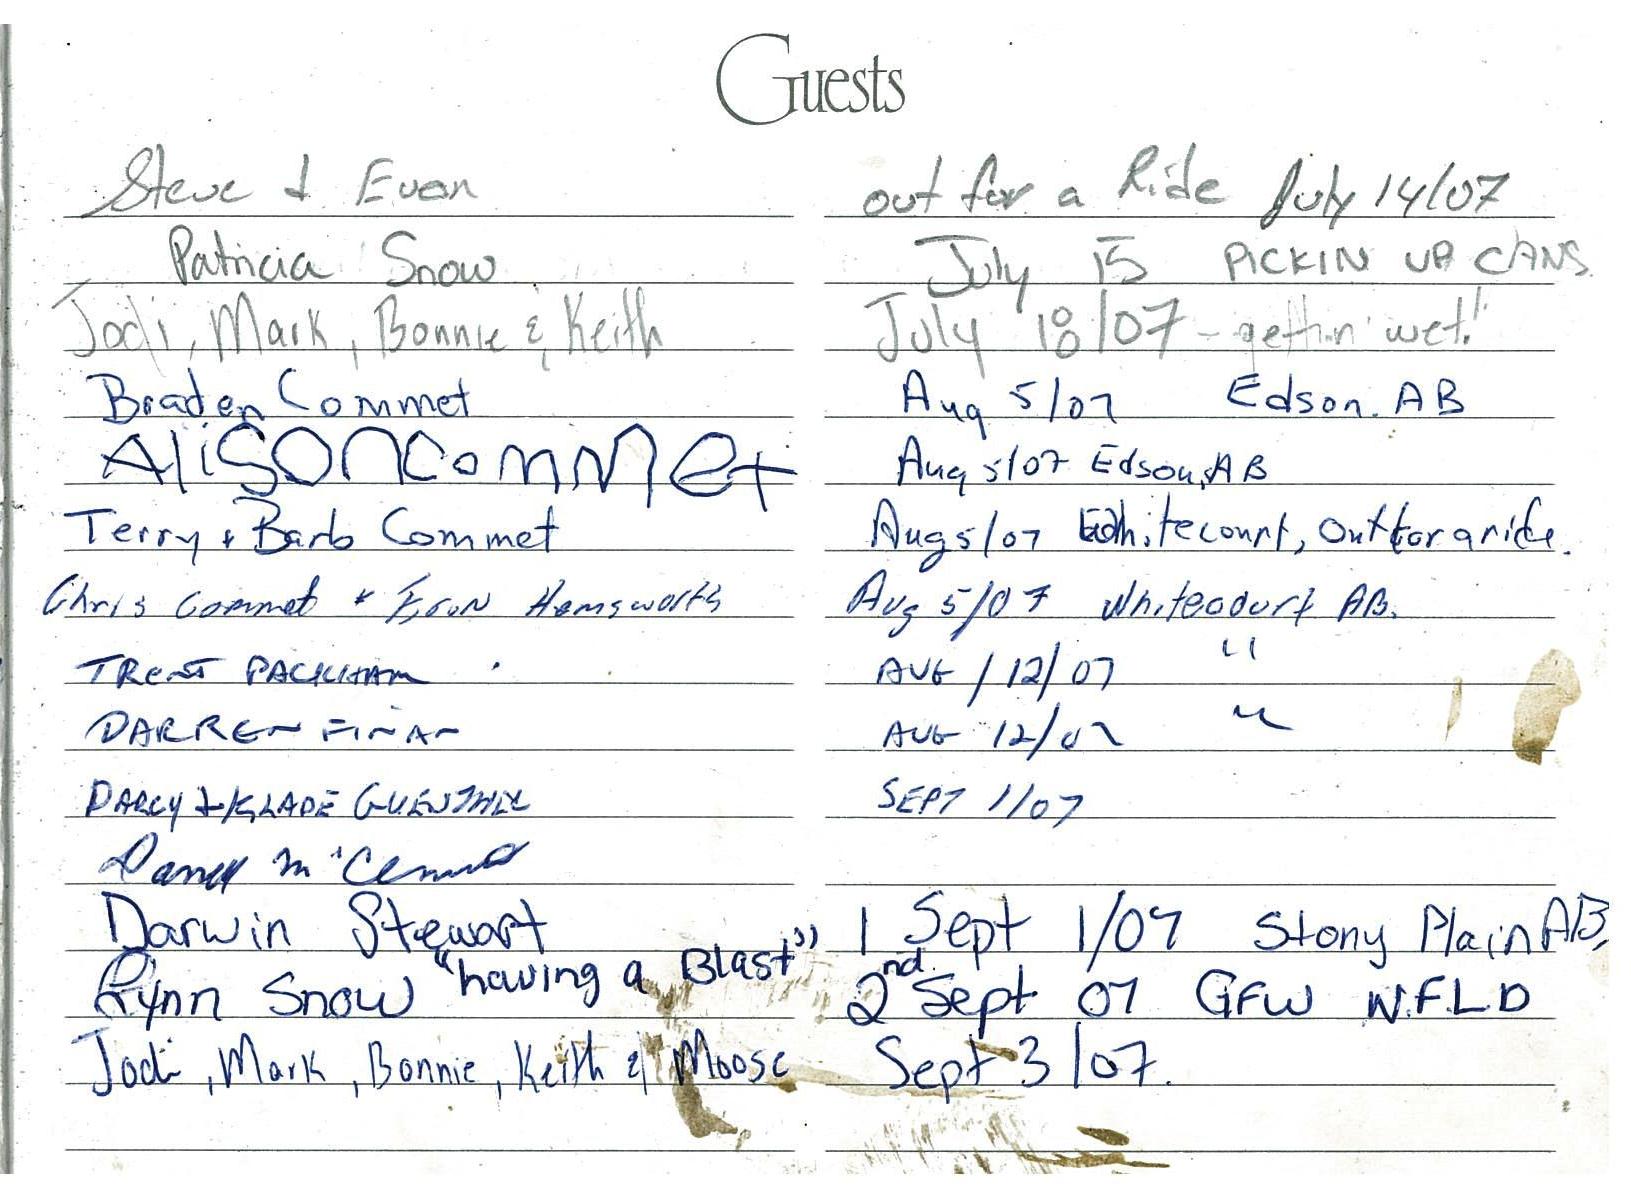 Guests
Steve & Evan out for a Ride July 14/07
Patricia Snow July 15 PICKIN UP CANS.
Jodi, Mark, Bonnie & Keith July 18/07 - gettin' wet!"
Braden Commet Aug 5/07 Edson. AB
Alison Commet Aug 5/07 Edson, AB
Terry + Barb Commet Aug 5/07 Whitecourt, Out for a ride.
Chris Commet + Hemsworth Aug 5/07 Whitecourt AB.
TRENT PACKHAM AUG / 12/07 "
DARREN FINAN AUG 12/07 "
DARCY + GUENTHER SEPT 1/07
Darwin Stewart 1 Sept 1/07 Stony Plain AB,
Lynn Snow "having a Blast" 2nd Sept 07 GFW N.F.L.D
Jodi, Mark, Bonnie, Keith & Moose Sept 3/07.